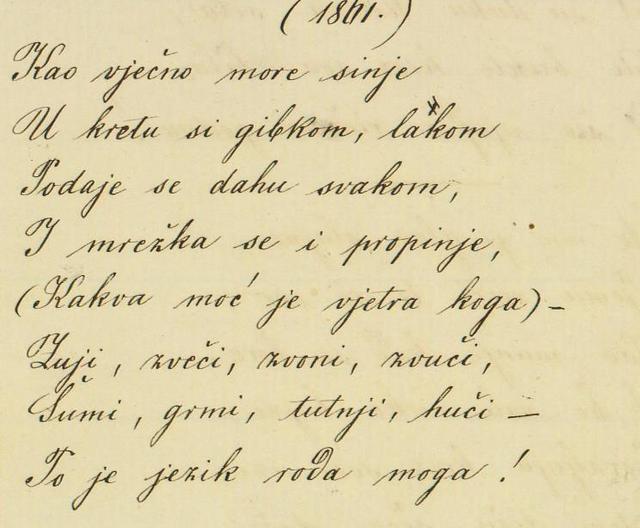 (1861.)
Kao vječno more sinje
U kretu si gibkom, lakom
Podaje se dahu svakom,
I mrežka se i propinje,
(Kakva moć je vjetra koga) –
Zuji, zveči, zvoni, zvuči,
Šumi, grmi, tutnji, huči –
To je jezik roda moga!